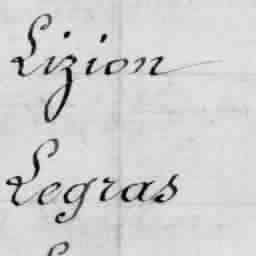 Lizion
Legras